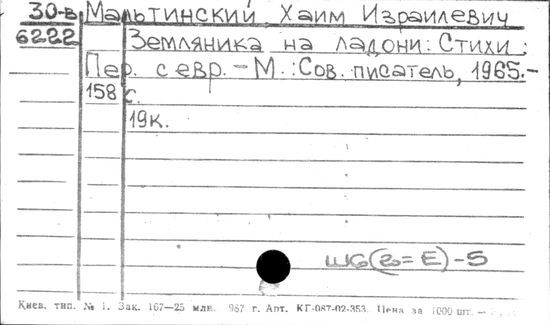 30-в Мальтинский Хаим Израилевич
6222 Земляника на ладони: Стихи:
Пер. с евр. – М.: Сов. писатель, 1965.-
158 с.
19к.
Ш6(2о=Е)-5
Киев. тип. № 1. Зак. 167—25 млн. 987 г. Арт. КГ-087-02-353. Цена за 1000 шт. —